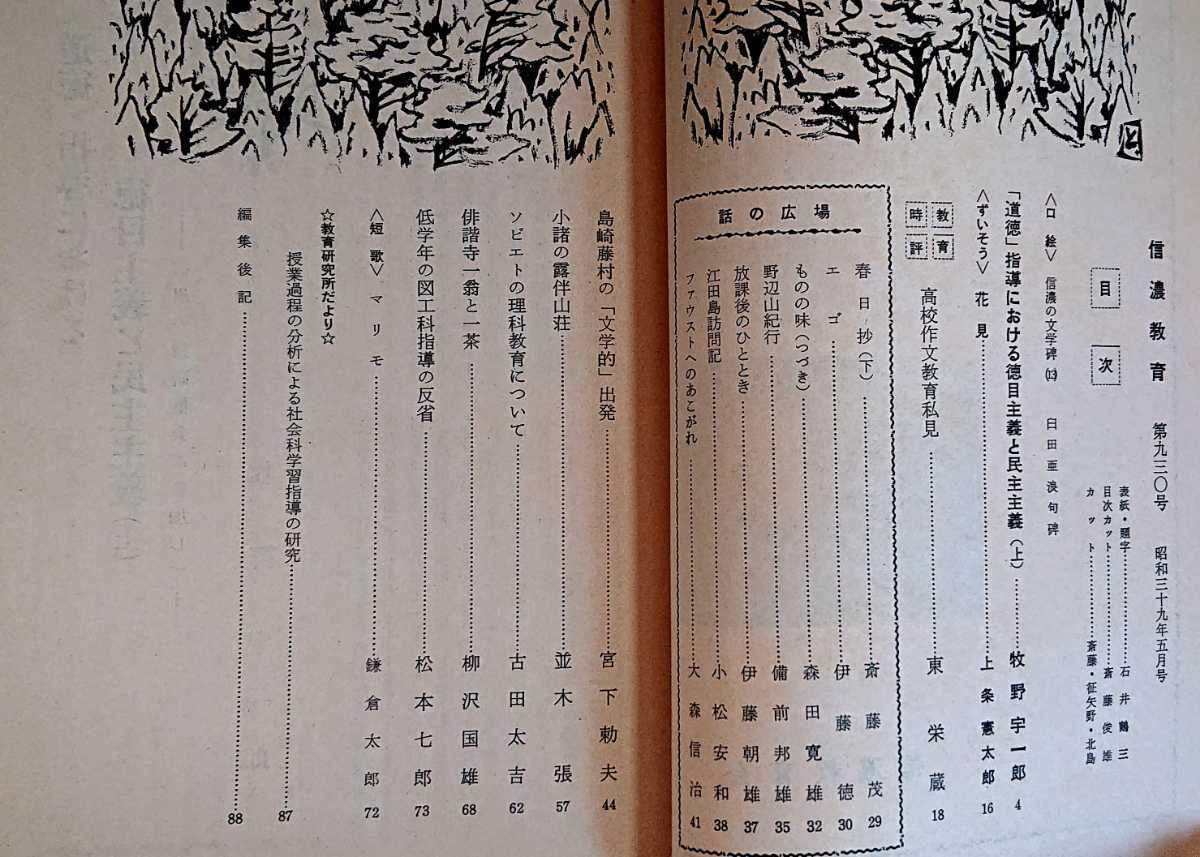 信濃教育　第九三〇号　昭和三十九年五月号
目次
表紙・題字……………石井鶴三
目次カット……………斎藤俊雄
カット……………斎藤・征矢野・北島
＜口絵＞　信濃の文学碑⒀　臼田亜浪句碑
「道徳」指導における徳目主義と民主主義（上）……………牧野宇一郎　4
＜ずいそう＞　花見……………上条憲太郎　16
教育時評
高校作文教育私見……………東栄蔵　18
話の広場
春日抄（下）……………斎藤茂　29
エゴ……………伊藤徳　30
ものの味（つづき）……………森田寛雄　32
野辺山紀行……………備前邦雄　35
放課後のひととき……………伊藤朝雄　37
江田島訪問記……………小松安和　38
ファウストへのあこがれ……………大森信治　41
島崎藤村の「文学的」出発……………宮下勅夫　44
小諸の露伴山荘……………並木張　57
ソビエトの理科教育について……………古田太吉　62
俳諧寺一翁と一茶……………柳沢国雄　68
低学年の図工科指導の反省……………松本七郎　73
＜短歌＞　マリモ……………鎌倉太郎　72
☆教育研究所だより☆
授業過程の分析による社会科学習指導の研究……………87
編集後記……………88